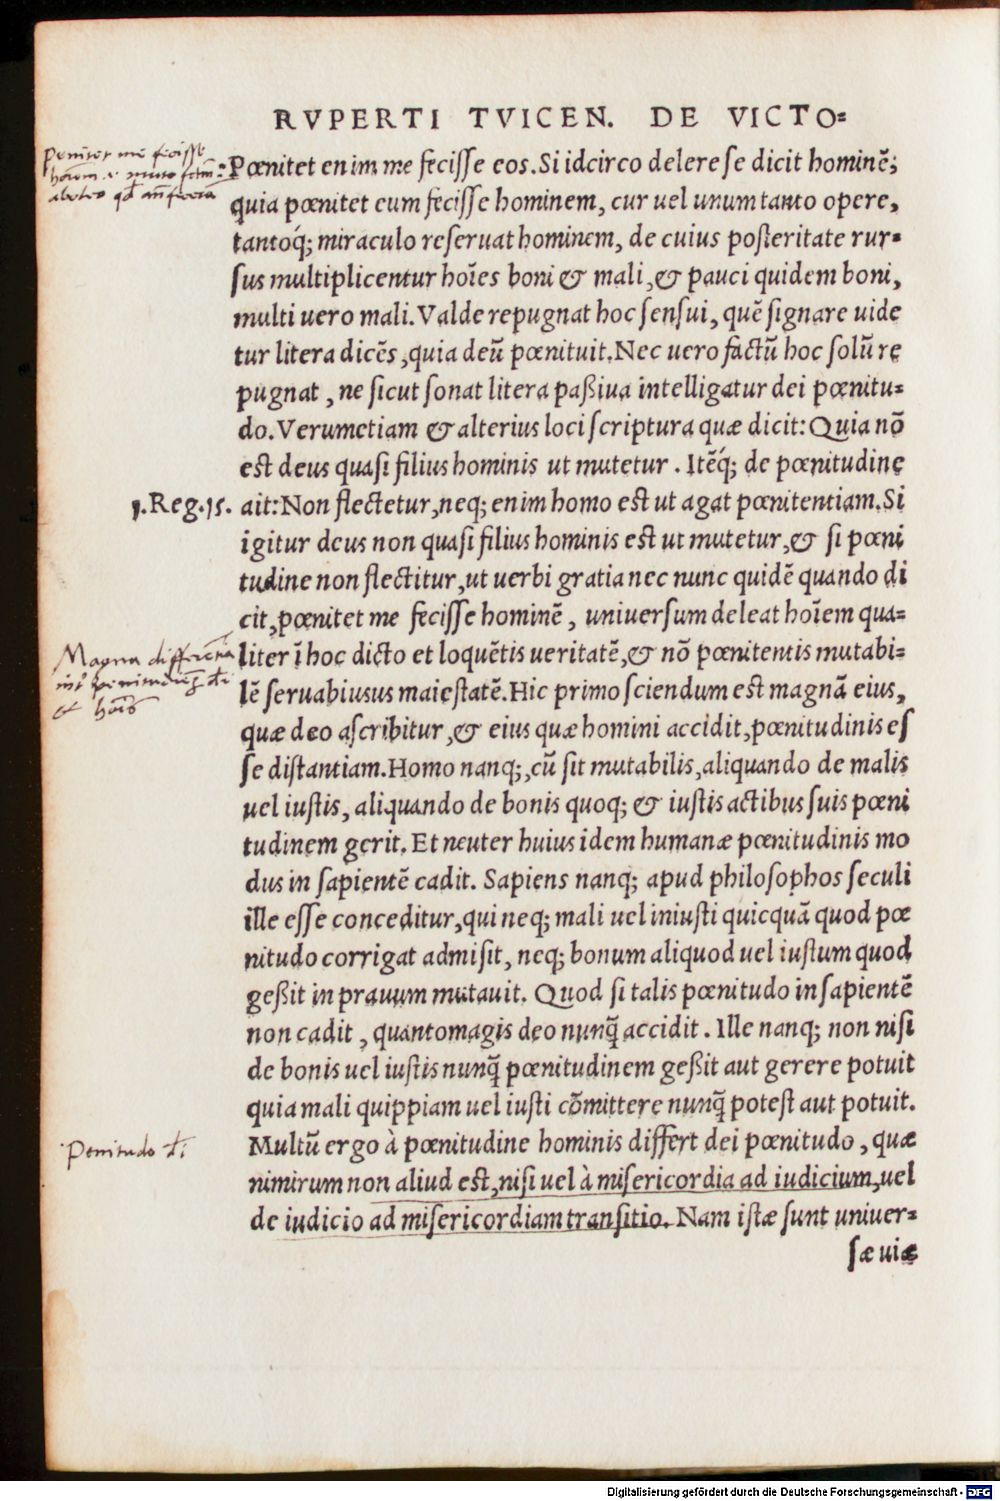 RVPERTI TVICEN. DE VICTO=
Pœnitet enim me fecisse eos. Si idcirco delere se dicit hominẽ;
quia pœnitet eum fecisse hominem, cur uel unum tanto opere,
tantoq́; miraculo reseruat hominem, de cuius posteritate rur=
sus multiplicentur hoĩes boni & mali, & pauci quidem boni,
multi uero mali. Valde repugnat hoc sensui, quẽ signare uide
tur litera dicẽs, quia deũ pœnituit. Nec uero factũ hoc solũ re
pugnat, ne sicut sonat litera paßiua intelligatur dei pœnitu=
do. Verumetiam & alterius loci scriptura quæ dicit: Quia nõ
est deus quasi filius hominis ut mutetur. Itẽq́; de pœnitudine
1. Reg. 15.
ait: Non flectetur, neq; enim homo est ut agat pœnitentiam. Si
igitur deus non quasi filius hominis est ut mutetur, & si pœni
tudine non flectitur, ut uerbi gratia nec nunc quidẽ quando di
cit, pœnitet me fecisse hominẽ, uniuersum deleat hoĩem qua=
Magna differentia
liter ĩ hoc dicto et loquẽtis ueritatẽ, & nõ pœnitentis mutabi=
lẽ seruabiusus maiestatẽ. Hic primo sciendum est magnã eius,
quæ deo ascribitur, & eius quæ homini accidit, pœnitudinis es
se distantiam. Homo nanq;, cũ sit mutabilis, aliquando de malis
uel iustis, aliquando de bonis quoq; & iustis actibus suis pœni
tudinem gerit. Et neuter huius idem humanæ pœnitudinis mo
dus in sapientẽ cadit. Sapiens nanq; apud philosophos seculi
ille esse conceditur, qui neq; mali uel iniusti quicquã quod pœ
nitudo corrigat admisit, neq; bonum aliquod uel iustum quod
geßit in prauum mutauit. Quod si talis pœnitudo in sapientẽ
non cadit, quantomagis deo nunq̃ accidit. Ille nanq; non nisi
de bonis uel iustis nunq̃ pœnitudinem geßit aut gerere potuit
quia mali quippiam uel iusti cõmittere nunq̃ potest aut potuit.
Penitudo di
Multũ ergo à pœnitudine hominis differt dei pœnitudo, quæ
nimirum non aliud est, nisi uel à misericordia ad iudicium, uel
de iudicio ad misericordiam transitio. Nam istæ sunt uniuer=
sæ uiæ
Digitalisierung gefördert durch die Deutsche Forschungsgemeinschaft - DFG